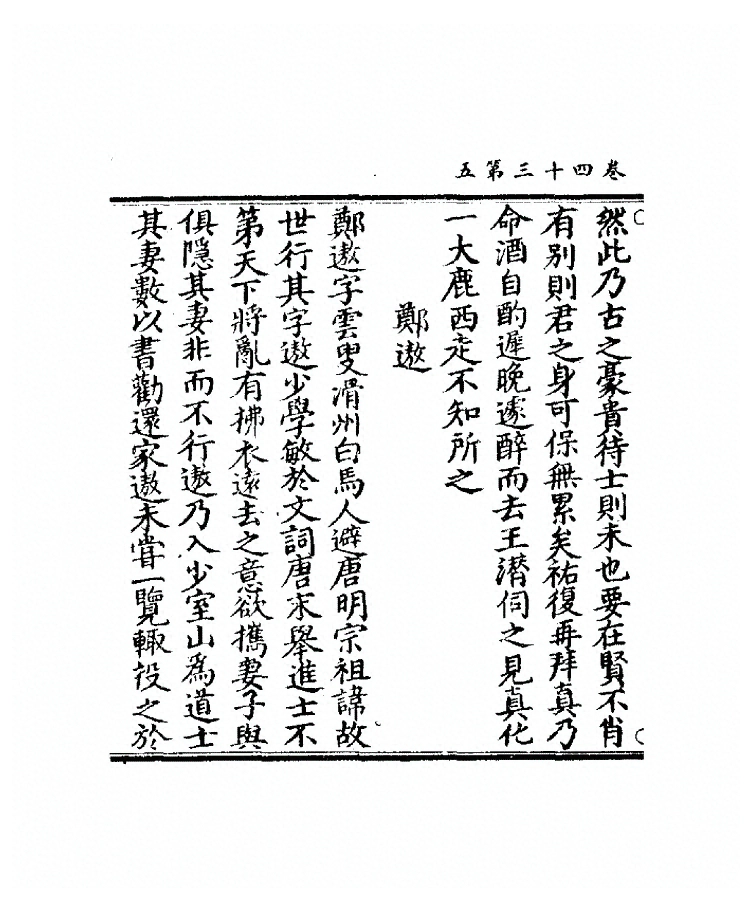 卷四十三第五
然此乃古之豪貴待士則未也要在賢不肖
有別則君之身可保無累矣祐復再拜真乃
命酒自酌遲晚遽醉而去王潛伺之見真化
一大鹿西走不知所之
鄭遨
鄭遨字雲叟滑州白馬人避唐明宗祖諱故
世行其字遨少學敏於文詞唐末舉進士不
第天下將亂有拂衣遠去之意欲攜妻子與
俱隱其妻非而不行遨乃入少室山為道士
其妻數以書勸還家遨未嘗一覽輙投之於